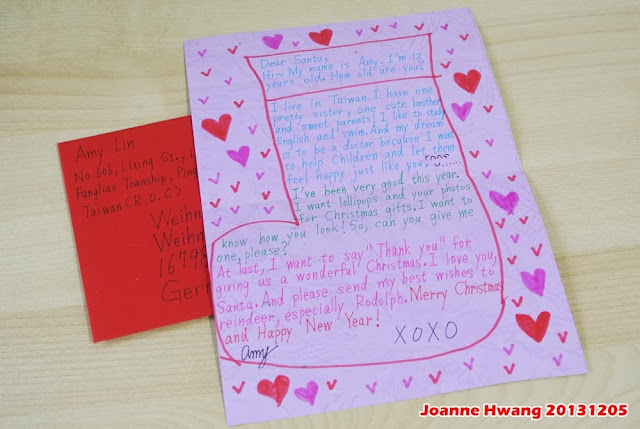 Dear Santa,
Hi~ My name is Amy. I'm 12
years old. How old are you?
I live in Taiwan. I have one
pretty sister, one cute brother
and sweet parents! I like to study
English and swim. And my dream
is to be a doctor because I want
to help Children and let them
feel happy just like you.
I've been very good this year.
I want lollipops and your photos
for Christmas gifts. I want to
know how you look! So, can you give me
one, please?
At last, I want to say "Thank you" for
giving us a wonderful Christmas. I love you,
Santa. And please send my best wishes to
reindeer, especially Rodolph. Merry Christmas
and Happy New Year!
Amy
XOXO
Amy Lin
No.606, Lixing St., L
Fangliao Township, Ping
Taiwan (R.O.C)
Weihn
Weihn
16798
Germ
Joanne Hwang 20131205